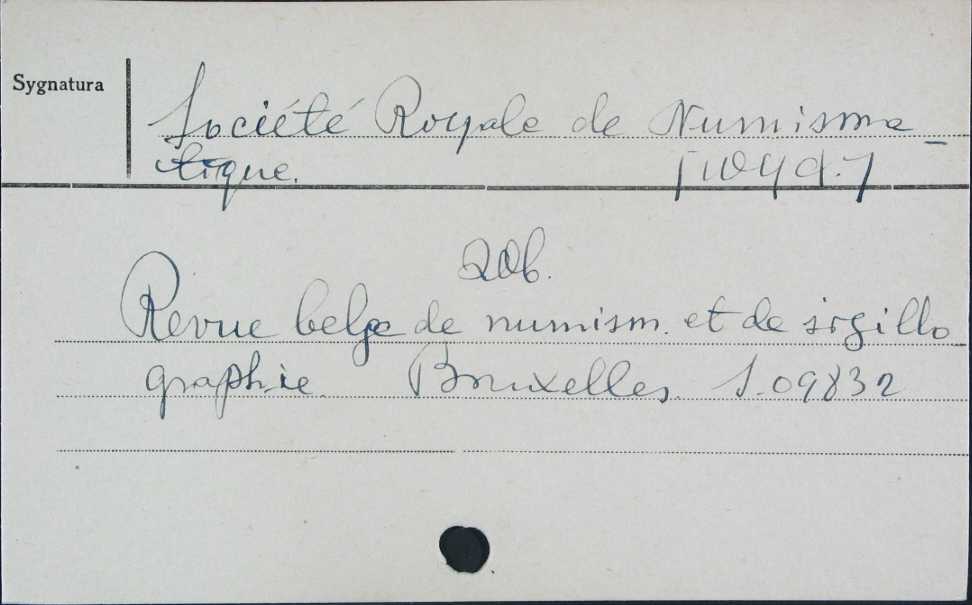 Sygnatura
Société Royale de Numisma-
tique. [wyd.]
Zob.
Revue belge de numism. et de sigillo
graphie. Bruxelles. S.09832